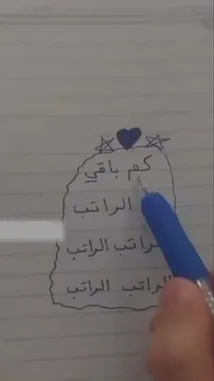 كم باقي
الراتب
الراتب الراتب
الراتب الراتب